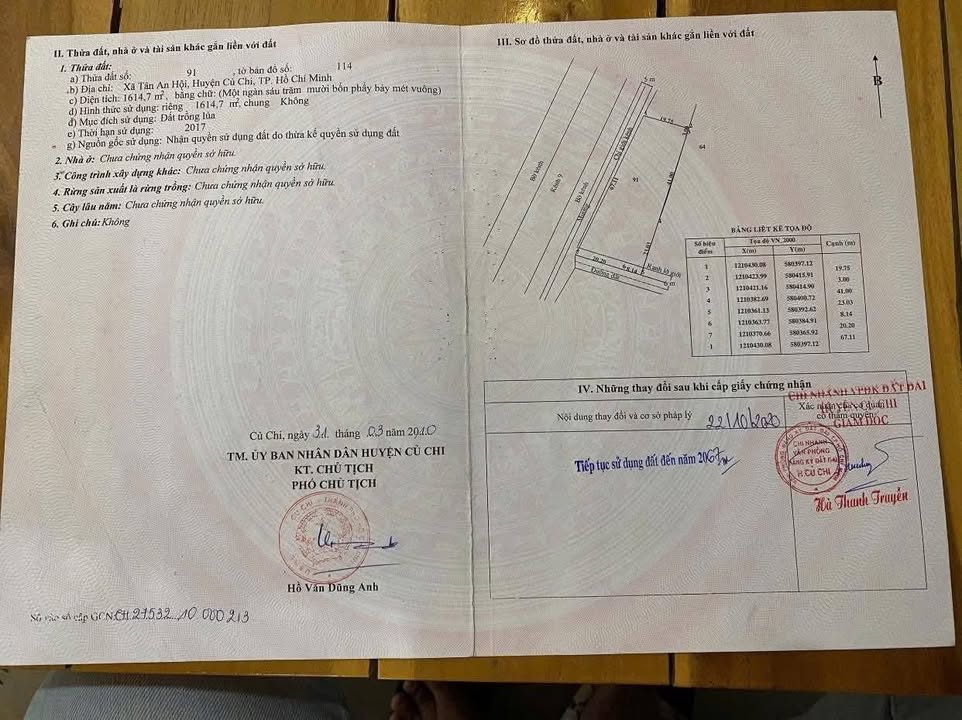 II. Thửa đất, nhà ở và tài sản khác gắn liền với đất
1. Thửa đất:
a) Thửa đất số: 91 , tờ bản đồ số: 114
b) Địa chỉ: Xã Tân An Hội, Huyện Củ Chi, TP. Hồ Chí Minh
c) Diện tích: 1614,7 m², bằng chữ: (Một ngàn sáu trăm mười bốn phẩy bảy mét vuông)
d) Hình thức sử dụng: riêng 1614,7 m², chung Không
đ) Mục đích sử dụng: Đất trồng lúa
e) Thời hạn sử dụng: 2017
g) Nguồn gốc sử dụng: Nhận quyền sử dụng đất do thừa kế quyền sử dụng đất
2. Nhà ở: Chưa chứng nhận quyền sở hữu.
3. Công trình xây dựng khác: Chưa chứng nhận quyền sở hữu.
4. Rừng sản xuất là rừng trồng: Chưa chứng nhận quyền sở hữu.
5. Cây lâu năm: Chưa chứng nhận quyền sở hữu.
6. Ghi chú: Không
Củ Chi, ngày 31 tháng 03 năm 2010
TM. ỦY BAN NHÂN DÂN HUYỆN CỦ CHI
KT. CHỦ TỊCH
PHÓ CHỦ TỊCH
Hồ Văn Dũng Anh
Số vào sổ cấp GCN: CH 27532
III. Sơ đồ thửa đất, nhà ở và tài sản khác gắn liền với đất
B
5 m
19.75
3.00
64
Bờ kênh
Kênh 9
Bờ kênh
Mương
Chỉ giới kênh
67.11
91
41.00
23.03
20.20
8.14
Ranh lộ giới
Đường đất
6 m
BẢNG LIỆT KÊ TỌA ĐỘ
Số hiệu điểm Tọa độ VN_2000 Cạnh (m)
X(m) Y(m)
1 1210430.08 580397.12
19.75
2 1210423.99 580415.91
3.00
3 1210421.16 580414.90
41.00
4 1210382.69 580400.72
23.03
5 1210361.13 580392.62
8.14
6 1210363.77 580384.91
20.20
7 1210370.66 580365.92
67.11
1 1210430.08 580397.12
IV. Những thay đổi sau khi cấp giấy chứng nhận
Nội dung thay đổi và cơ sở pháp lý
Xác nhận của cơ quan có thẩm quyền
22/10/2020
CHI NHÁNH VPĐK ĐẤT ĐAI
HUYỆN CỦ CHI
GIÁM ĐỐC
Tiếp tục sử dụng đất đến năm 2067
CHI NHÁNH
VĂN PHÒNG
ĐĂNG KÝ ĐẤT ĐAI
H. CỦ CHI
Hà Thanh Truyền